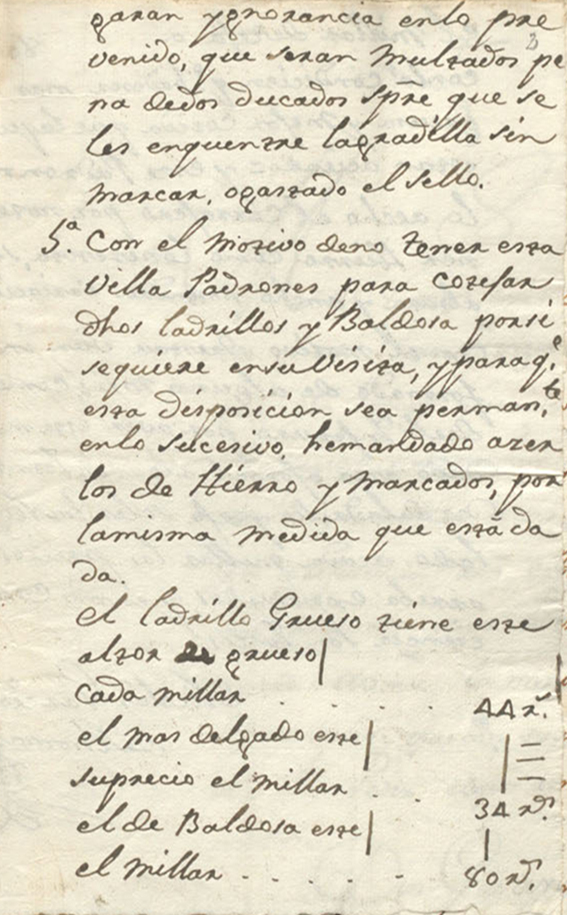 garan ygnorancia enlo pre
venido, que seran Multados pe
na dedos ducados spre que se
les enquentre lagradilla sin
marcar, ogastado el sello.
5.ª Con el Motivo deno tener esta
Villa Padrones para cotejar
dhos ladrillos y Baldosa porsi
sequiere ensu Visita, yparaq.e
esta disposicion sea perman.te
enlo sucesivo, hemandado azer
los de Hierro y Marcados, por
lamisma medida que está da
da.
el ladrillo Grueso tiene este
altor de grueso |
Cada millar . . . . . 44 r.s
el mas delgado este |
suprecio el millar . . . 34 r.s
el de Baldosa este |
el millar . . . . . 80 r.s